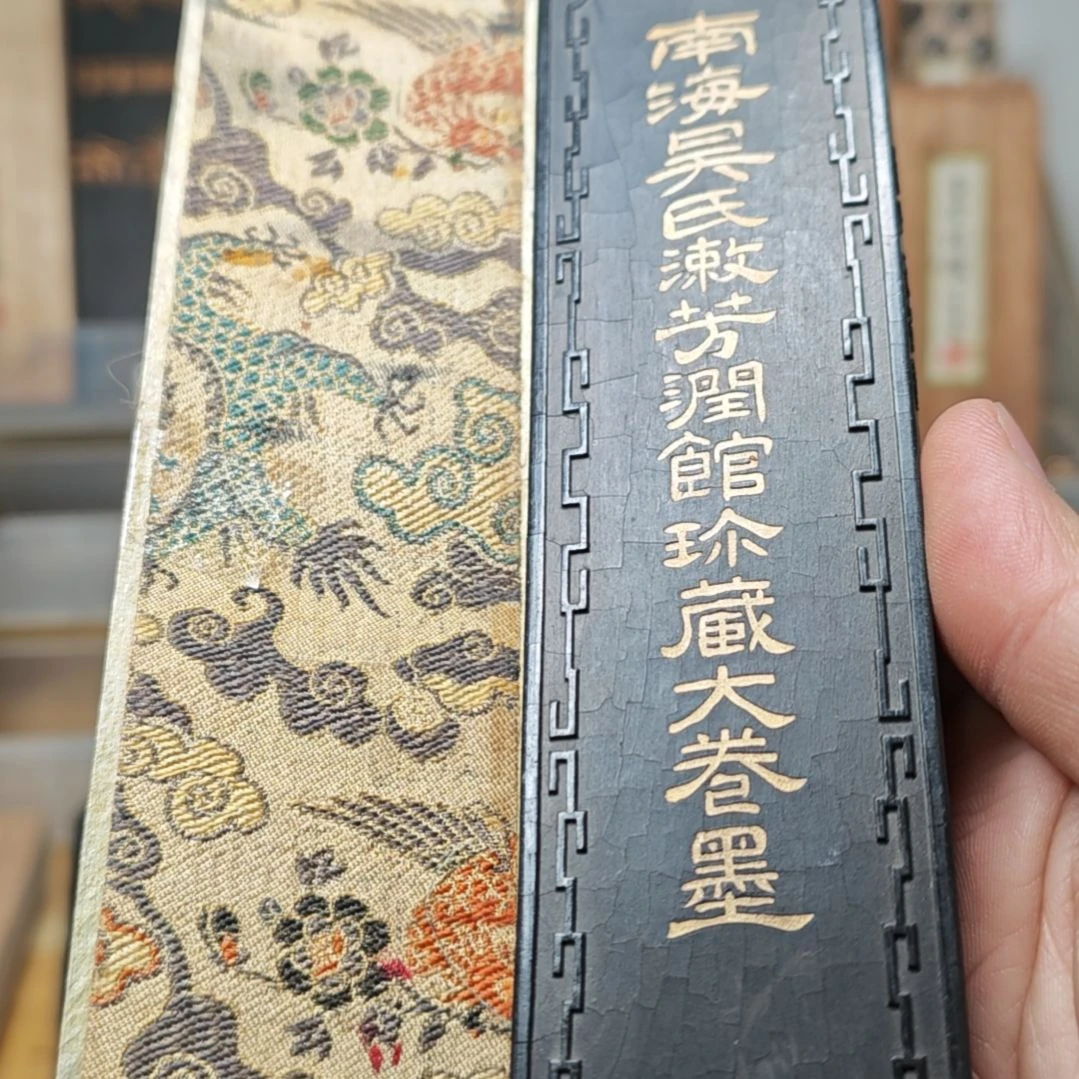 南海吳氏漱芳潤館珎藏大卷墨